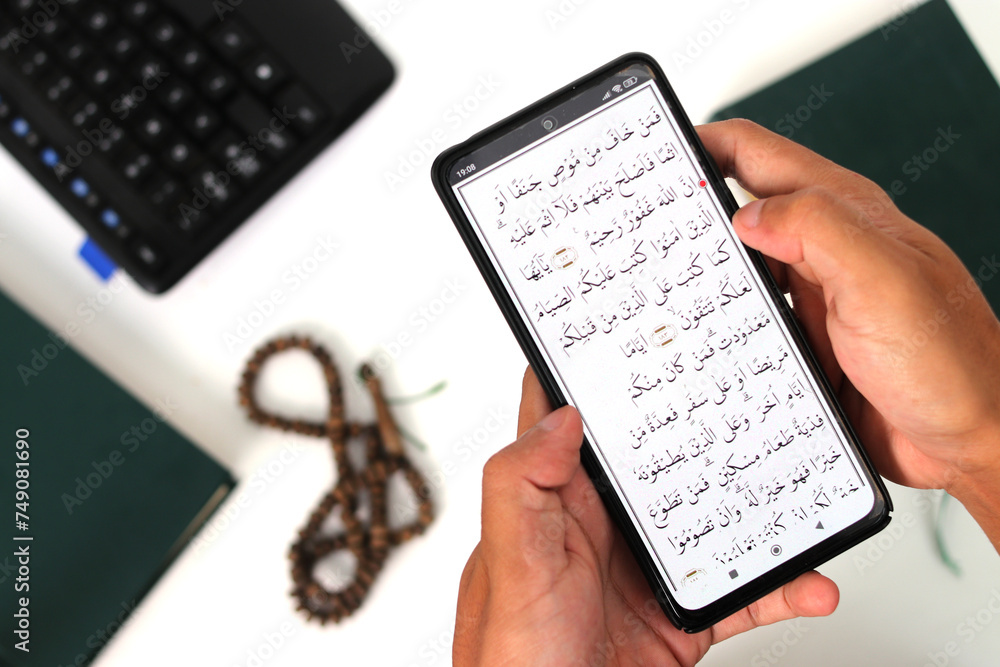 19:08
فَمَنْ خَافَ مِنْ مُّوْصٍ جَنَفًا اَوْ
اِثْمًا فَاَصْلَحَ بَيْنَهُمْ فَلَآ اِثْمَ عَلَيْهِ ۗ
اِنَّ اللّٰهَ غَفُوْرٌ رَّحِيْمٌ ١٨٢ يٰٓاَيُّهَا
الَّذِيْنَ اٰمَنُوْا كُتِبَ عَلَيْكُمُ الصِّيَامُ
كَمَا كُتِبَ عَلَى الَّذِيْنَ مِنْ قَبْلِكُمْ
لَعَلَّكُمْ تَتَّقُوْنَ ۙ ١٨٣ اَيَّامًا
مَّعْدُوْدٰتٍ ۗ فَمَنْ كَانَ مِنْكُمْ
مَّرِيْضًا اَوْ عَلٰى سَفَرٍ فَعِدَّةٌ مِّنْ
اَيَّامٍ اُخَرَ ۗ وَعَلَى الَّذِيْنَ يُطِيْقُوْنَهٗ
فِدْيَةٌ طَعَامُ مِسْكِيْنٍ ۗ فَمَنْ تَطَوَّعَ
خَيْرًا فَهُوَ خَيْرٌ لَّهٗ ۗ وَاَنْ تَصُوْمُوْا
خَيْرٌ لَّكُمْ اِنْ كُنْتُمْ تَعْلَمُوْنَ
Adobe Stock | #749081690